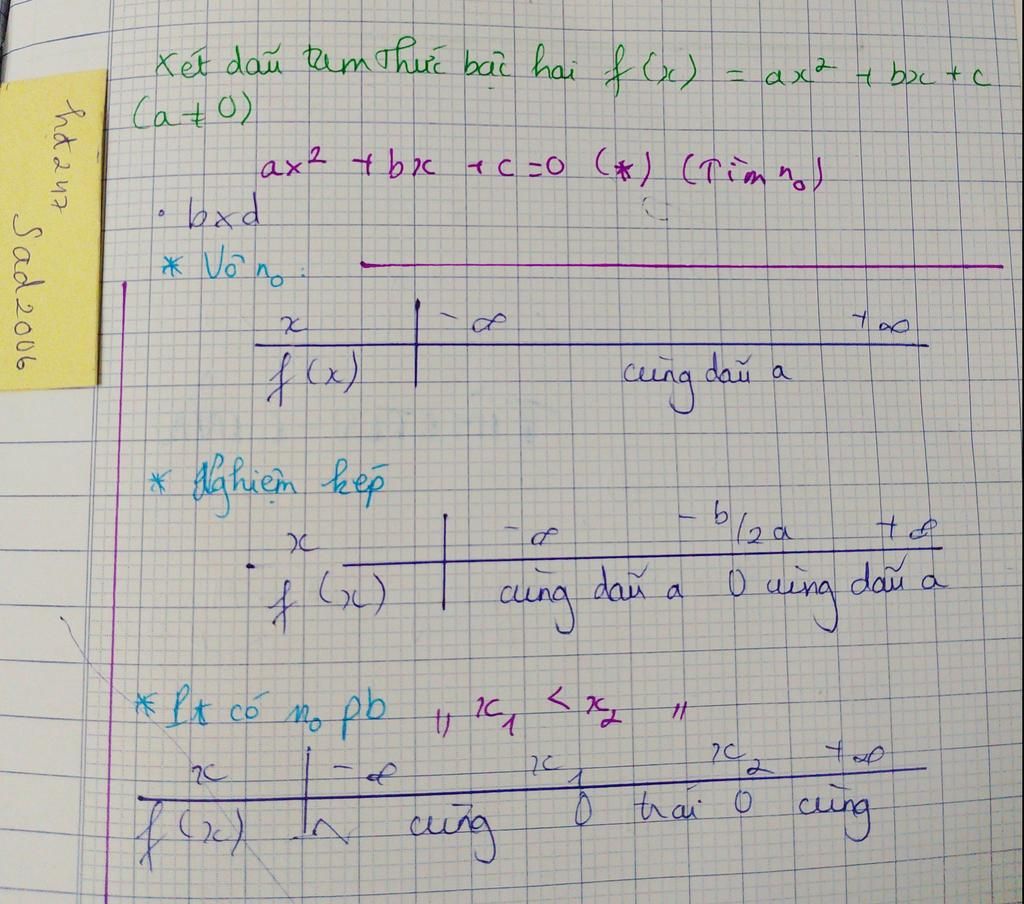 Xét dấu tam thức bậc hai f(x) = ax² + bx + c
(a ≠ 0)
ax² + bx + c = 0 (*) (Tìm n₀)
• bxd
* Vô n₀ :
x | -∞ +∞
f(x) | cùng dấu a
* Nghiệm kép
x | -∞ -b/2a +∞
f(x) | cùng dấu a 0 cùng dấu a
* Pt có n₀ pb " x₁ < x₂ "
x | -∞ x₁ x₂ +∞
f(x) | cùng 0 trái 0 cùng
hd247
Sad2006